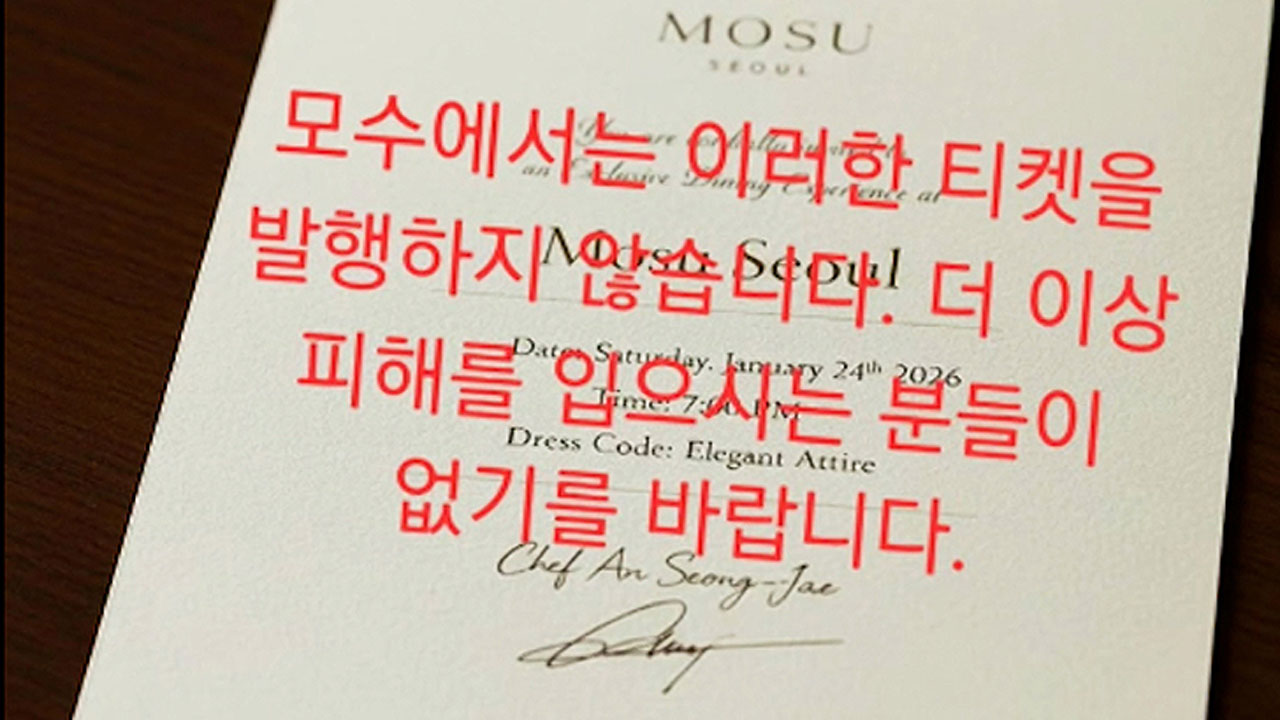 MOSU
SEOUL
모수에서는 이러한 티켓을
You are cordially invited to
an Exclusive Dining Experience at
발행하지 않습니다. 더 이상
Mosu Seoul
피해를 입으시는 분들이
Date: Saturday. January 24th 2026
Time: 7:00 PM
Dress Code: Elegant Attire
없기를 바랍니다.
Chef An Seong-Jae